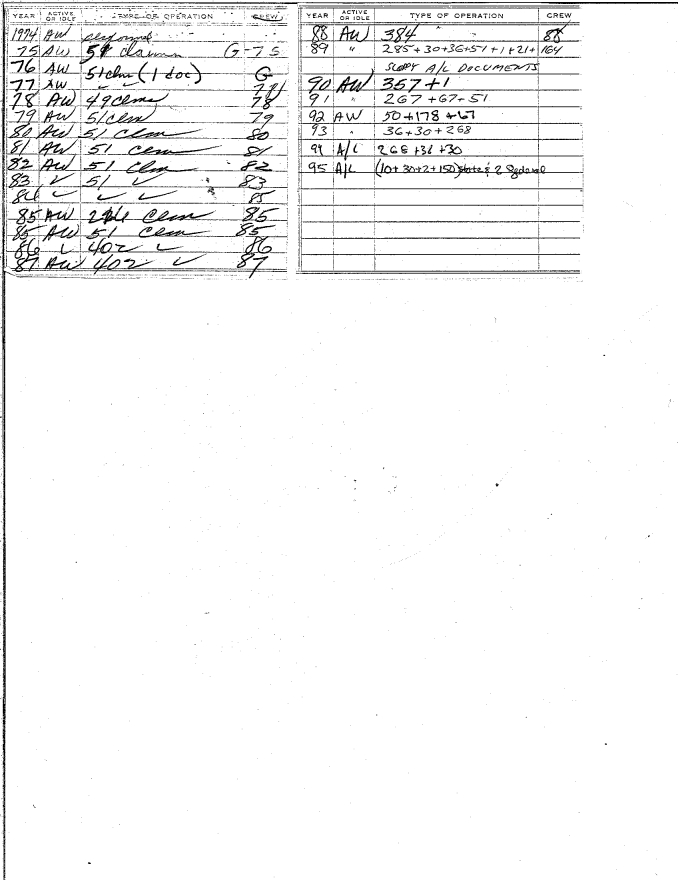 YEAR ACTIVE OR IDLE TYPE OF OPERATION CREW
1974 AW
75 AW 51 claims G-75
76 AW 51 clm (1 doc) G
77 AW ✓ ✓ 77
78 AW 49 clms 78
79 AW 51 clm 79
80 AW 51 clm 80
81 AW 51 clm 81
82 AW 51 clm 82
83 ✓ 51 ✓ 83
84 ✓ ✓ ✓ 85
85 AW clm 85
85 AW 51 clm 85
86 ✓ 402 ✓ 86
87 AW 402 ✓ 87
YEAR ACTIVE OR IDLE TYPE OF OPERATION CREW
88 AW 384 " 88
89 " 285+30+36+51+1+21+164
5 COPY A/L DOCUMENTS
90 AW 357+1
91 " 267+67+51
92 AW 50+178+67
93 " 36+30+268
94 A/L 268+36+30
95 A/L (10+30+2+150) state & 2 Federal